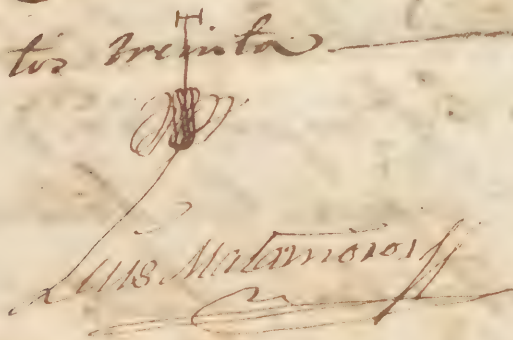 tos treinta
Luis Matamoros